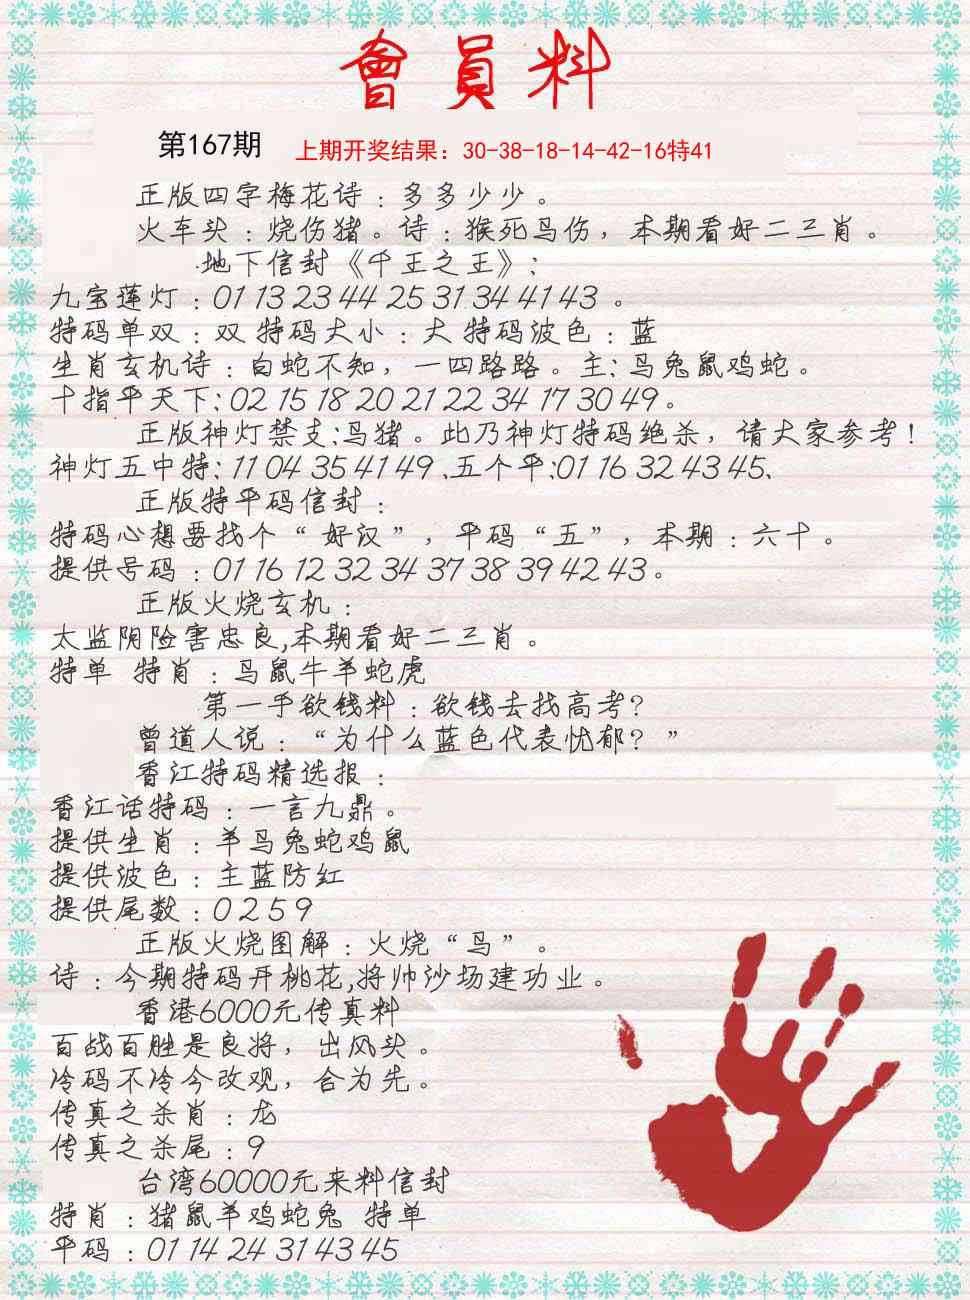 會員料
第167期 上期开奖结果：30-38-18-14-42-16特41
正版四字梅花诗：多多少少。
火车头：烧伤猪。诗：猴死鸟伤，本期看好二三肖。
地下信封《千王之王》：
九宝莲灯：01 13 23 44 25 31 34 41 43 。
特码单双：双 特码大小：大 特码波色：蓝
生肖玄机诗：白蛇不知，一四路路。主：马兔鼠鸡蛇。
十指平天下：02 15 18 20 21 22 34 17 30 49。
正版神灯禁支：马猪。此乃神灯特码绝杀，请大家参考！
神灯五中特：11 04 35 41 49 .五个平：01 16 32 43 45.
正版特平码信封：
特码心想要找个“好汉”，平码“五”，本期：六十。
提供号码：01 16 12 32 34 37 38 39 42 43。
正版火烧玄机：
太监阴险害忠良,本期看好二三肖。
特单 特肖：马鼠牛羊蛇虎
第一手欲钱料：欲钱去找高考？
曾道人说：“为什么蓝色代表忧郁？”
香江特码精选报：
香江话特码：一言九鼎。
提供生肖：羊马兔蛇鸡鼠
提供波色：主蓝防红
提供尾数：0 2 5 9
正版火烧图解：火烧“马”。
诗：今期特码开桃花,将帅沙场建功业。
香港6000元传真料
百战百胜是良将，出风头。
冷码不冷今改观，合为先。
传真之杀肖：龙
传真之杀尾：9
台湾60000元来料信封
特肖：猪鼠羊鸡蛇兔 特单
平码：01 14 24 31 43 45